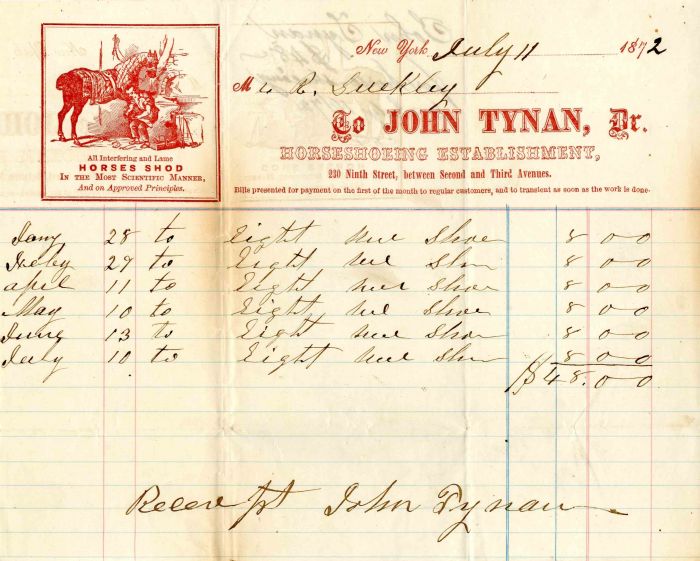 New York July 11 1872
Mr R. Buckley
To JOHN TYNAN, Dr.
HORSESHOEING ESTABLISHMENT,
230 Ninth Street, between Second and Third Avenues.
Bills presented for payment on the first of the month to regular customers, and to transient as soon as the work is done.
All Interfering and Lame
HORSES SHOD
IN THE MOST SCIENTIFIC MANNER,
And on Approved Principles.
Jany 28 to Eight new Shoe 8 00
29 to Eight new Shoe 8 00
april 11 to Eight new Shoe 8 00
May 10 to Eight new Shoe 8 00
June 13 to Eight new Shoe 8 00
July 10 to Eight new Shoe 8 00
$48.00
John Tynan